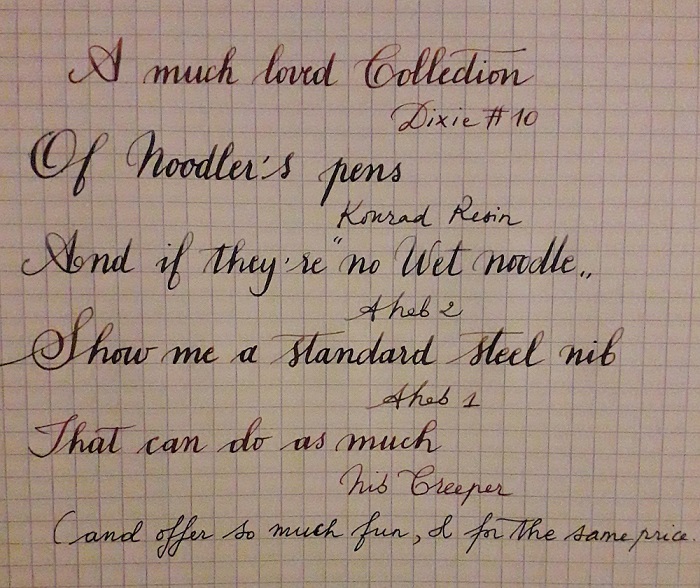 A much loved Collection
Dixie #10
Of Noodler's pens
Konrad Resin
And if they're "no Wet noodle„
Aheb 2
Show me a standard steel nib
Aheb 1
That can do as much
Nib Creeper
(and offer so much fun, & for the same price.